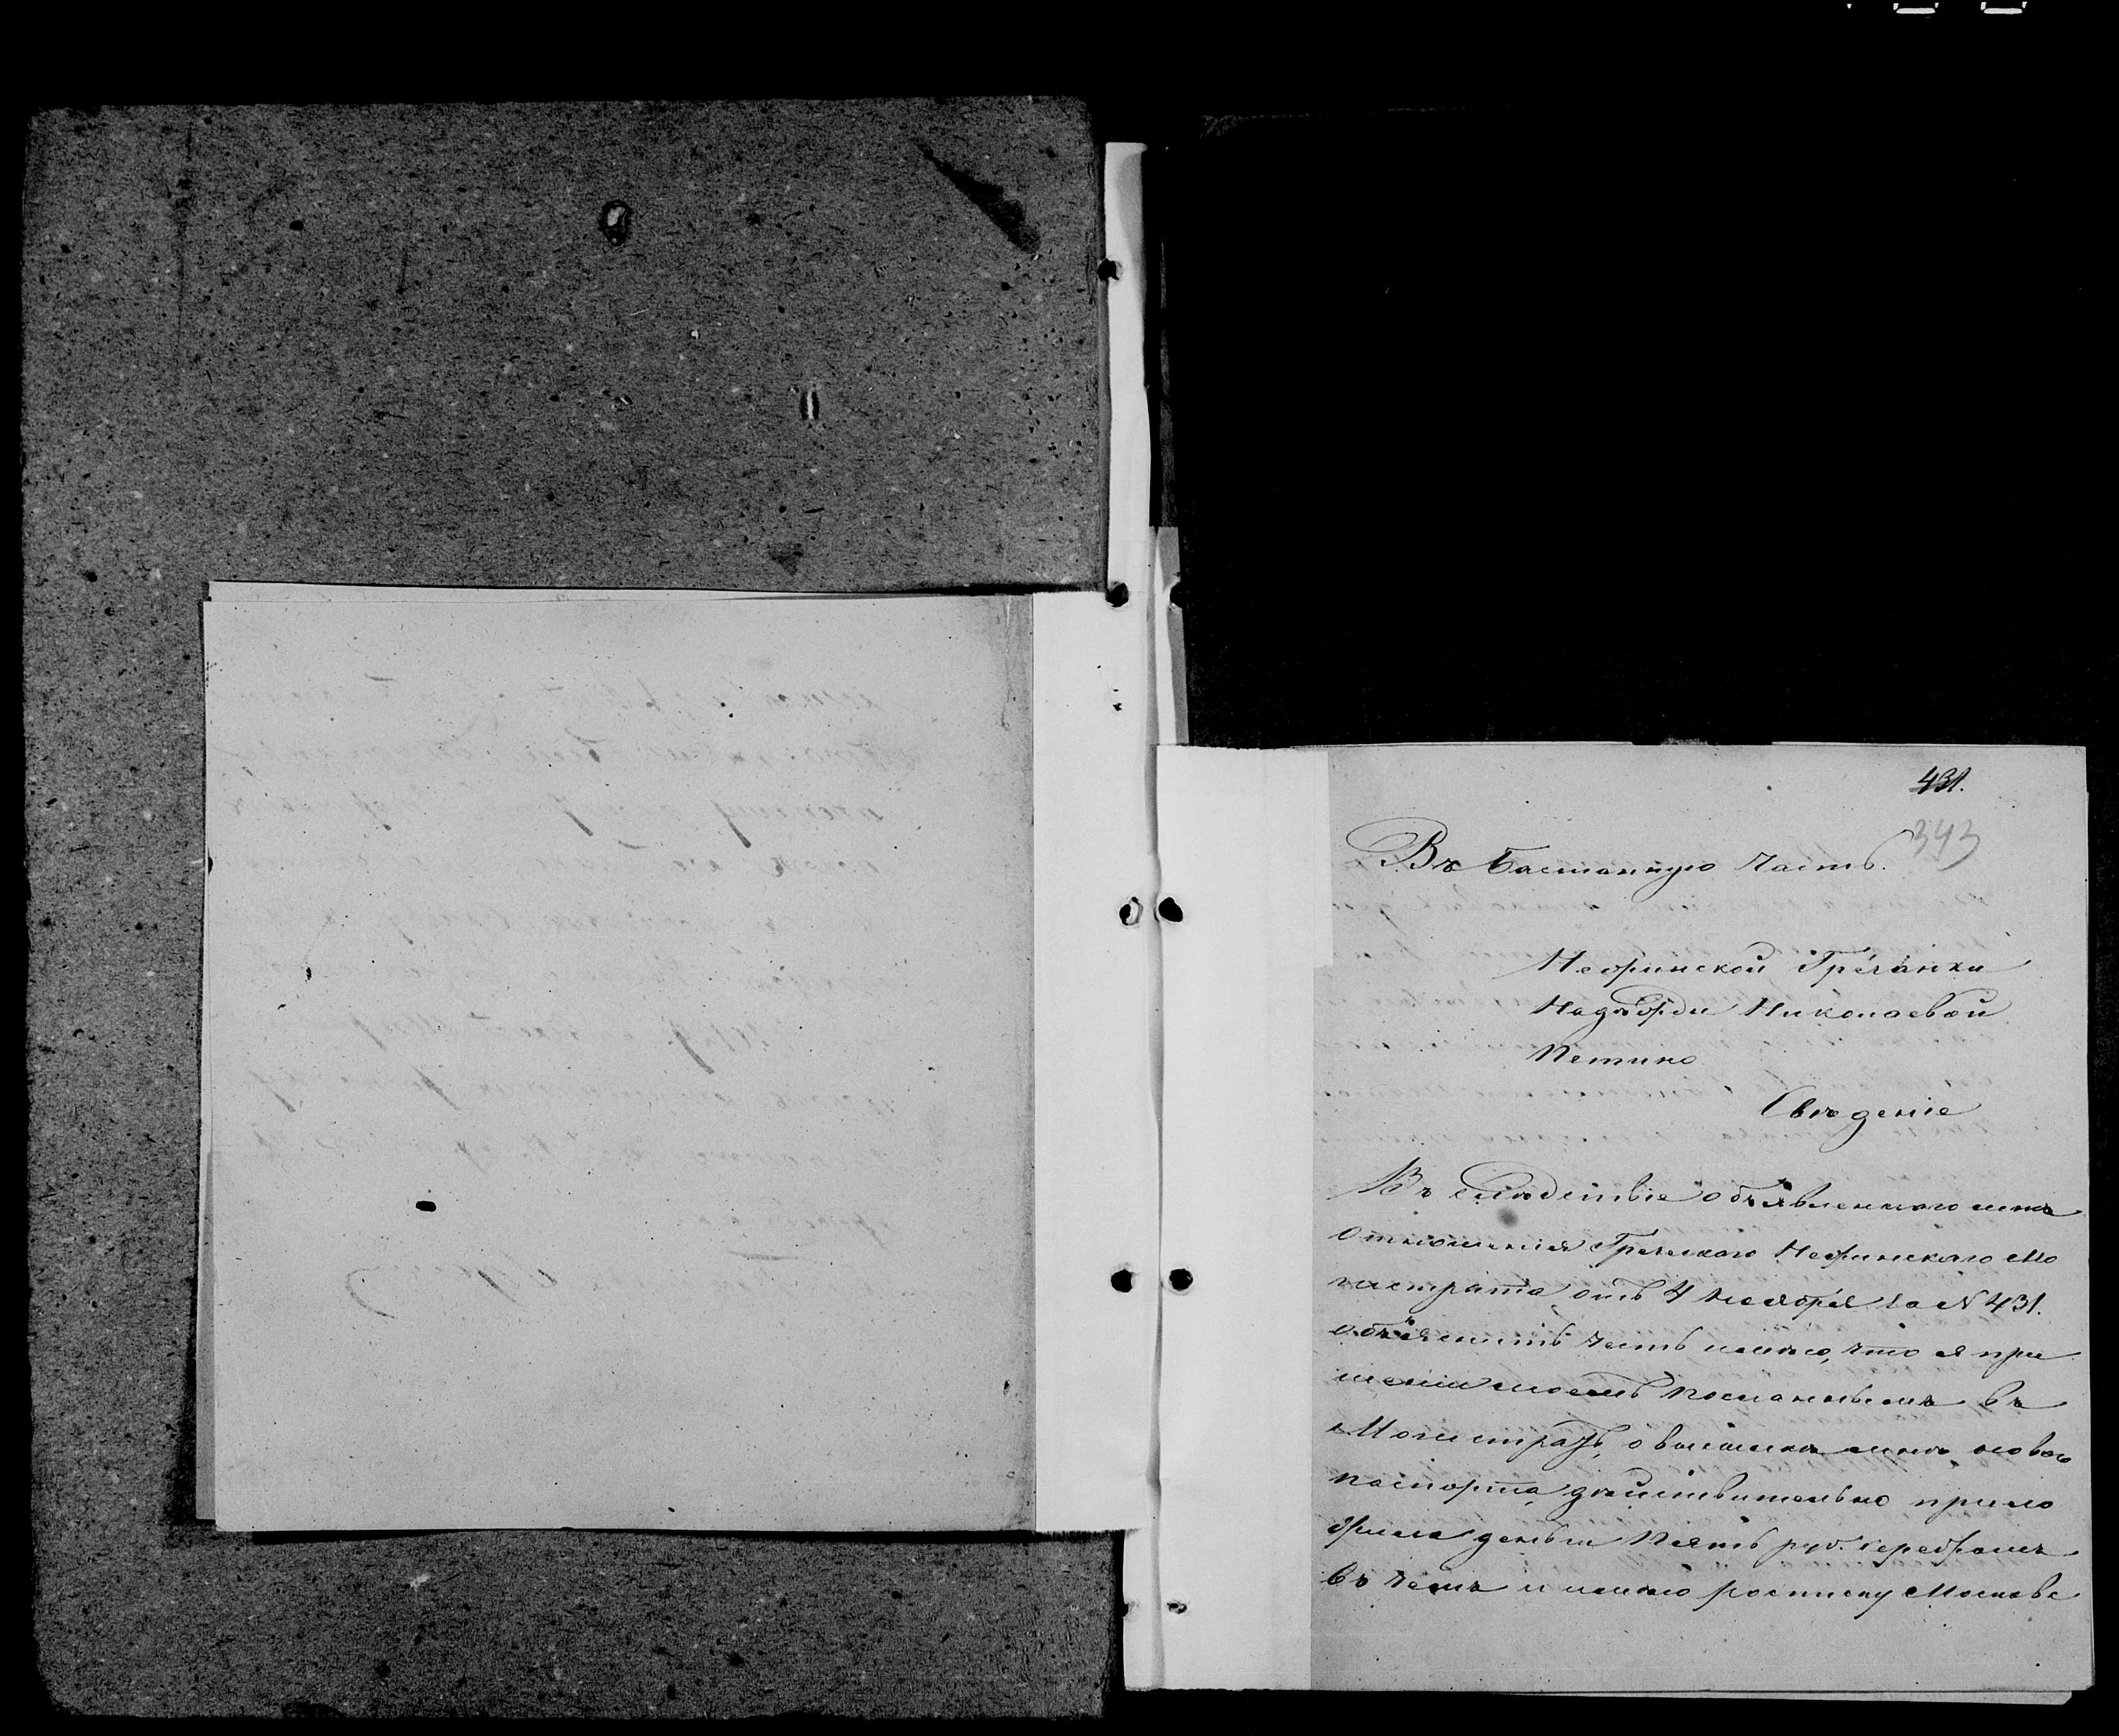 431.
343
Въ Басманную часть.
Нежинской Гречанки
Надѣжды Николаевой
Петино
Свѣденіе
Въ слѣдствіе объявленнаго мнѣ
отношенія Греческаго Нежинскаго Ма
гистрата отъ 4 ноября за № 431.
объяснить честь имѣю, что я при
моемъ въ
Магистратъ, о высылкѣ мнѣ новаго
паспорта, дѣйствительно прило
жила деньги пять руб. серебромъ
въ чемъ и имѣю росписку Москов